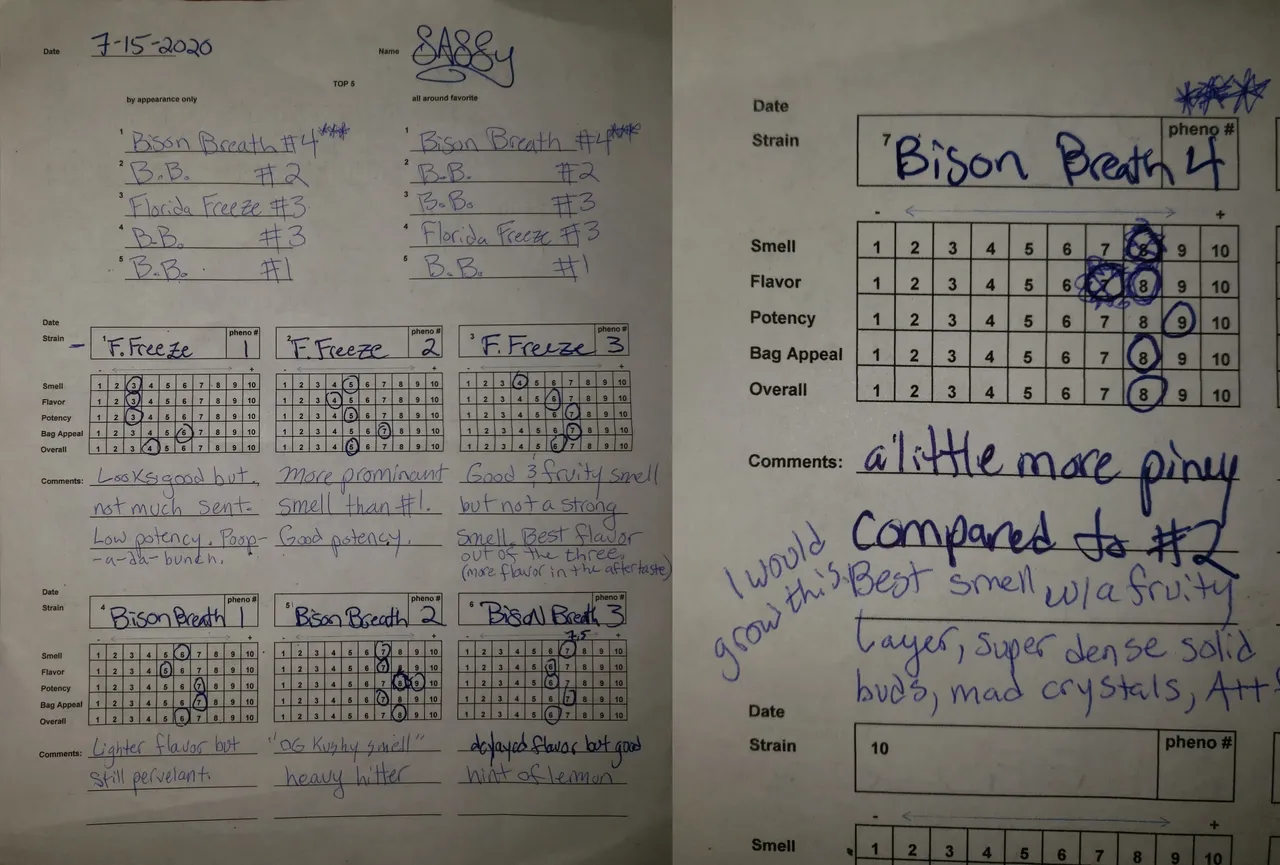 Date 7-15-2020 Name SASSy
TOP 5
by appearance only all around favorite
1 Bison Breath #4*** 1 Bison Breath #4***
2 B.B. #2 2 B.B. #2
3 Florida Freeze #3 3 B.B. #3
4 B.B. #3 4 Florida Freeze #3
5 B.B. #1 5 B.B. #1
Date
Strain 1 F. Freeze pheno # 1 2 F. Freeze pheno # 2 3 F. Freeze pheno # 3
- + - + - +
Smell 1 2 3 4 5 6 7 8 9 10 1 2 3 4 5 6 7 8 9 10 1 2 3 4 5 6 7 8 9 10
Flavor 1 2 3 4 5 6 7 8 9 10 1 2 3 4 5 6 7 8 9 10 1 2 3 4 5 6 7 8 9 10
Potency 1 2 3 4 5 6 7 8 9 10 1 2 3 4 5 6 7 8 9 10 1 2 3 4 5 6 7 8 9 10
Bag Appeal 1 2 3 4 5 6 7 8 9 10 1 2 3 4 5 6 7 8 9 10 1 2 3 4 5 6 7 8 9 10
Overall 1 2 3 4 5 6 7 8 9 10 1 2 3 4 5 6 7 8 9 10 1 2 3 4 5 6 7 8 9 10
Comments: Looks good but More prominant Good & fruity smell
not much sent. smell than #1. but not a strong
Low potency. Poop- Good potency. Smell. Best flavor
-a-da-bunch. out of the three.
(more flavor in the after taste)
Date
Strain 4 Bison Breath pheno # 1 5 Bison Breath pheno # 2 6 Bison Breath pheno # 3
- + - + 7.5 +
Smell 1 2 3 4 5 6 7 8 9 10 1 2 3 4 5 6 7 8 9 10 1 2 3 4 5 6 7 8 9 10
Flavor 1 2 3 4 5 6 7 8 9 10 1 2 3 4 5 6 7 8 9 10 1 2 3 4 5 6 7 8 9 10
Potency 1 2 3 4 5 6 7 8 9 10 1 2 3 4 5 6 7 8 9 10 1 2 3 4 5 6 7 8 9 10
Bag Appeal 1 2 3 4 5 6 7 8 9 10 1 2 3 4 5 6 7 8 9 10 1 2 3 4 5 6 7 8 9 10
Overall 1 2 3 4 5 6 7 8 9 10 1 2 3 4 5 6 7 8 9 10 1 2 3 4 5 6 7 8 9 10
Comments: Lighter flavor but "OG Kushy smell" delayed flavor but good
still pervelant. heavy hitter hint of lemon
Date ***
Strain 7 Bison Breath pheno # 4
- +
Smell 1 2 3 4 5 6 7 8 9 10
Flavor 1 2 3 4 5 6 7 8 9 10
Potency 1 2 3 4 5 6 7 8 9 10
Bag Appeal 1 2 3 4 5 6 7 8 9 10
Overall 1 2 3 4 5 6 7 8 9 10
Comments: a little more piney
Compared to #2
I would
grow this.
Best smell w/a fruity
Layer, super dense solid
buds, mad crystals, A++
Date
Strain 10 pheno #
- +
Smell 1 2 3 4 5 6 7 8 9 10